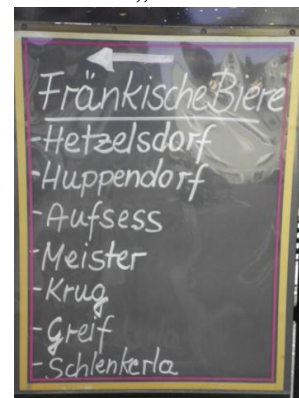 Fränkische Biere
-Hetzelsdorf
-Huppendorf
-Aufsess
-Meister
-Krug
-Greif
-Schlenkerla